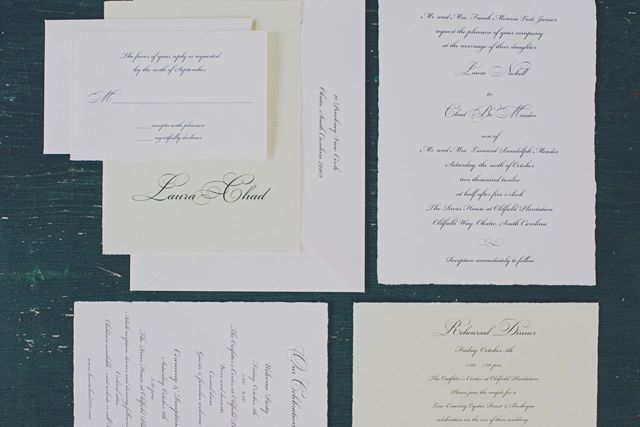 The favor of your reply is requested
by the ninth of September
M
accepts with pleasure
regretfully declines
Laura Chad
Okatie, South Carolina
Mr. and Mrs. Frank Monroe Post, Junior
request the pleasure of your company
at the marriage of their daughter
Laura
to
Chad
son of
Mr. and Mrs. Leonard Randolph Meader
Saturday, the sixth of October
two thousand twelve
at half after five o'clock
The River House at Oldfield Plantation
Oldfield Way, Okatie, South Carolina
Reception immediately to follow
Our Celebration
Welcome Party
Friday, October 5th
The Outfitter's Center at Oldfield Plantation
Wine and desserts
Casual attire
Guests & families welcome
Ceremony & Reception
Saturday, October 6th
The River House at Oldfield Plantation
Cocktail attire
Rehearsal Dinner
Friday, October 5th
The Outfitter's Center at Oldfield Plantation
Please join the couple for a
Low-Country Oyster Roast & Barbeque
celebration on the eve of their wedding